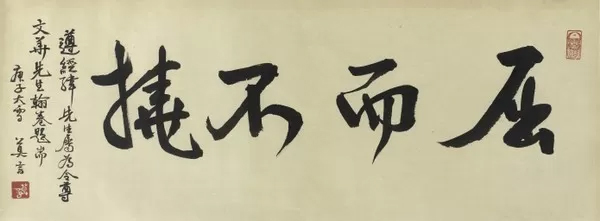 屈而不撓
遵經緯先生屬為令尊
文華先生翰卷題耑
庚子大雪 莫言